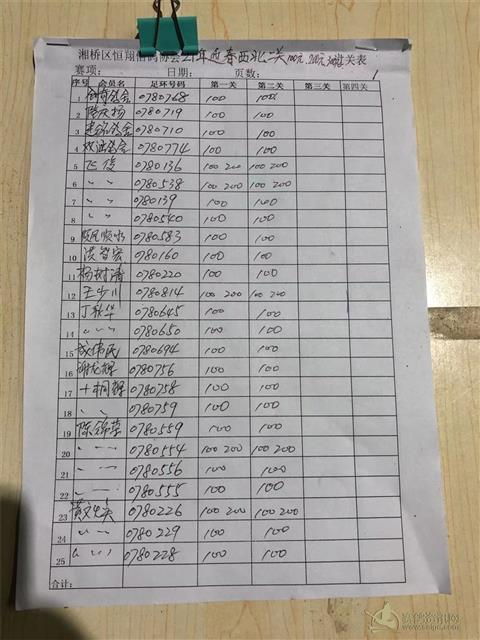 湘桥区恒翔信鸽协会21年近春西北一关100元.200元
赛项: 日期: 页数: 1
序号 会员名 足环号码 第一关 第二关 第三关 第四关
1 鸽会 0780768 100 100
2 陈庆扬 0780719 100 100
3 鸽会 0780710 100 100
4 鸽会 0780774 100 100
5 飞俊 0780136 100 200 100 200
6 〃 〃 0780538 100 200 100 200
7 〃 〃 0780139 100 100
8 〃 〃 0780540 100 100
9 顺风顺水 0780583 100 100
10 洪智宏 0780160 100 100
11 杨树潘 0780220 100 100
12 王少川 0780814 100 200 100 200
13 丁秋华 0780645 100 100
14 〃 〃 〃 0780650 100 100
15 成伟民 0780694 100 100
16 谢龙辉 0780756 100 100
17 十桐辉 0780758 100 100
18 〃 〃 0780759 100 100
19 陈锦荣 0780559 100 100
20 〃 — 〃 0780554 100 200 100 200
21 〃 — 〃 0780556 100 100
22 〃 — 〃 0780555 100 100
23 黄 0780226 100 200 100 200
24 〃 〃 0780229 100 100
25 〃 〃 〃 0780228 100 100
合计: